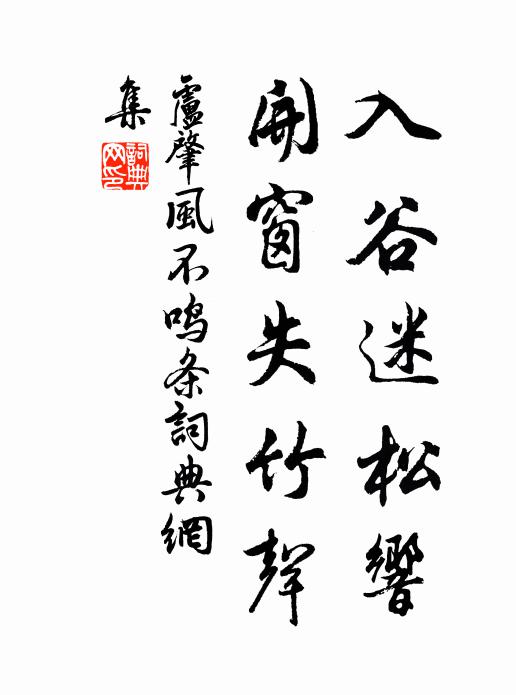 入谷迷松響
開窗失竹聲
盧肇風不鳴条詞典網
集
詞典
网印